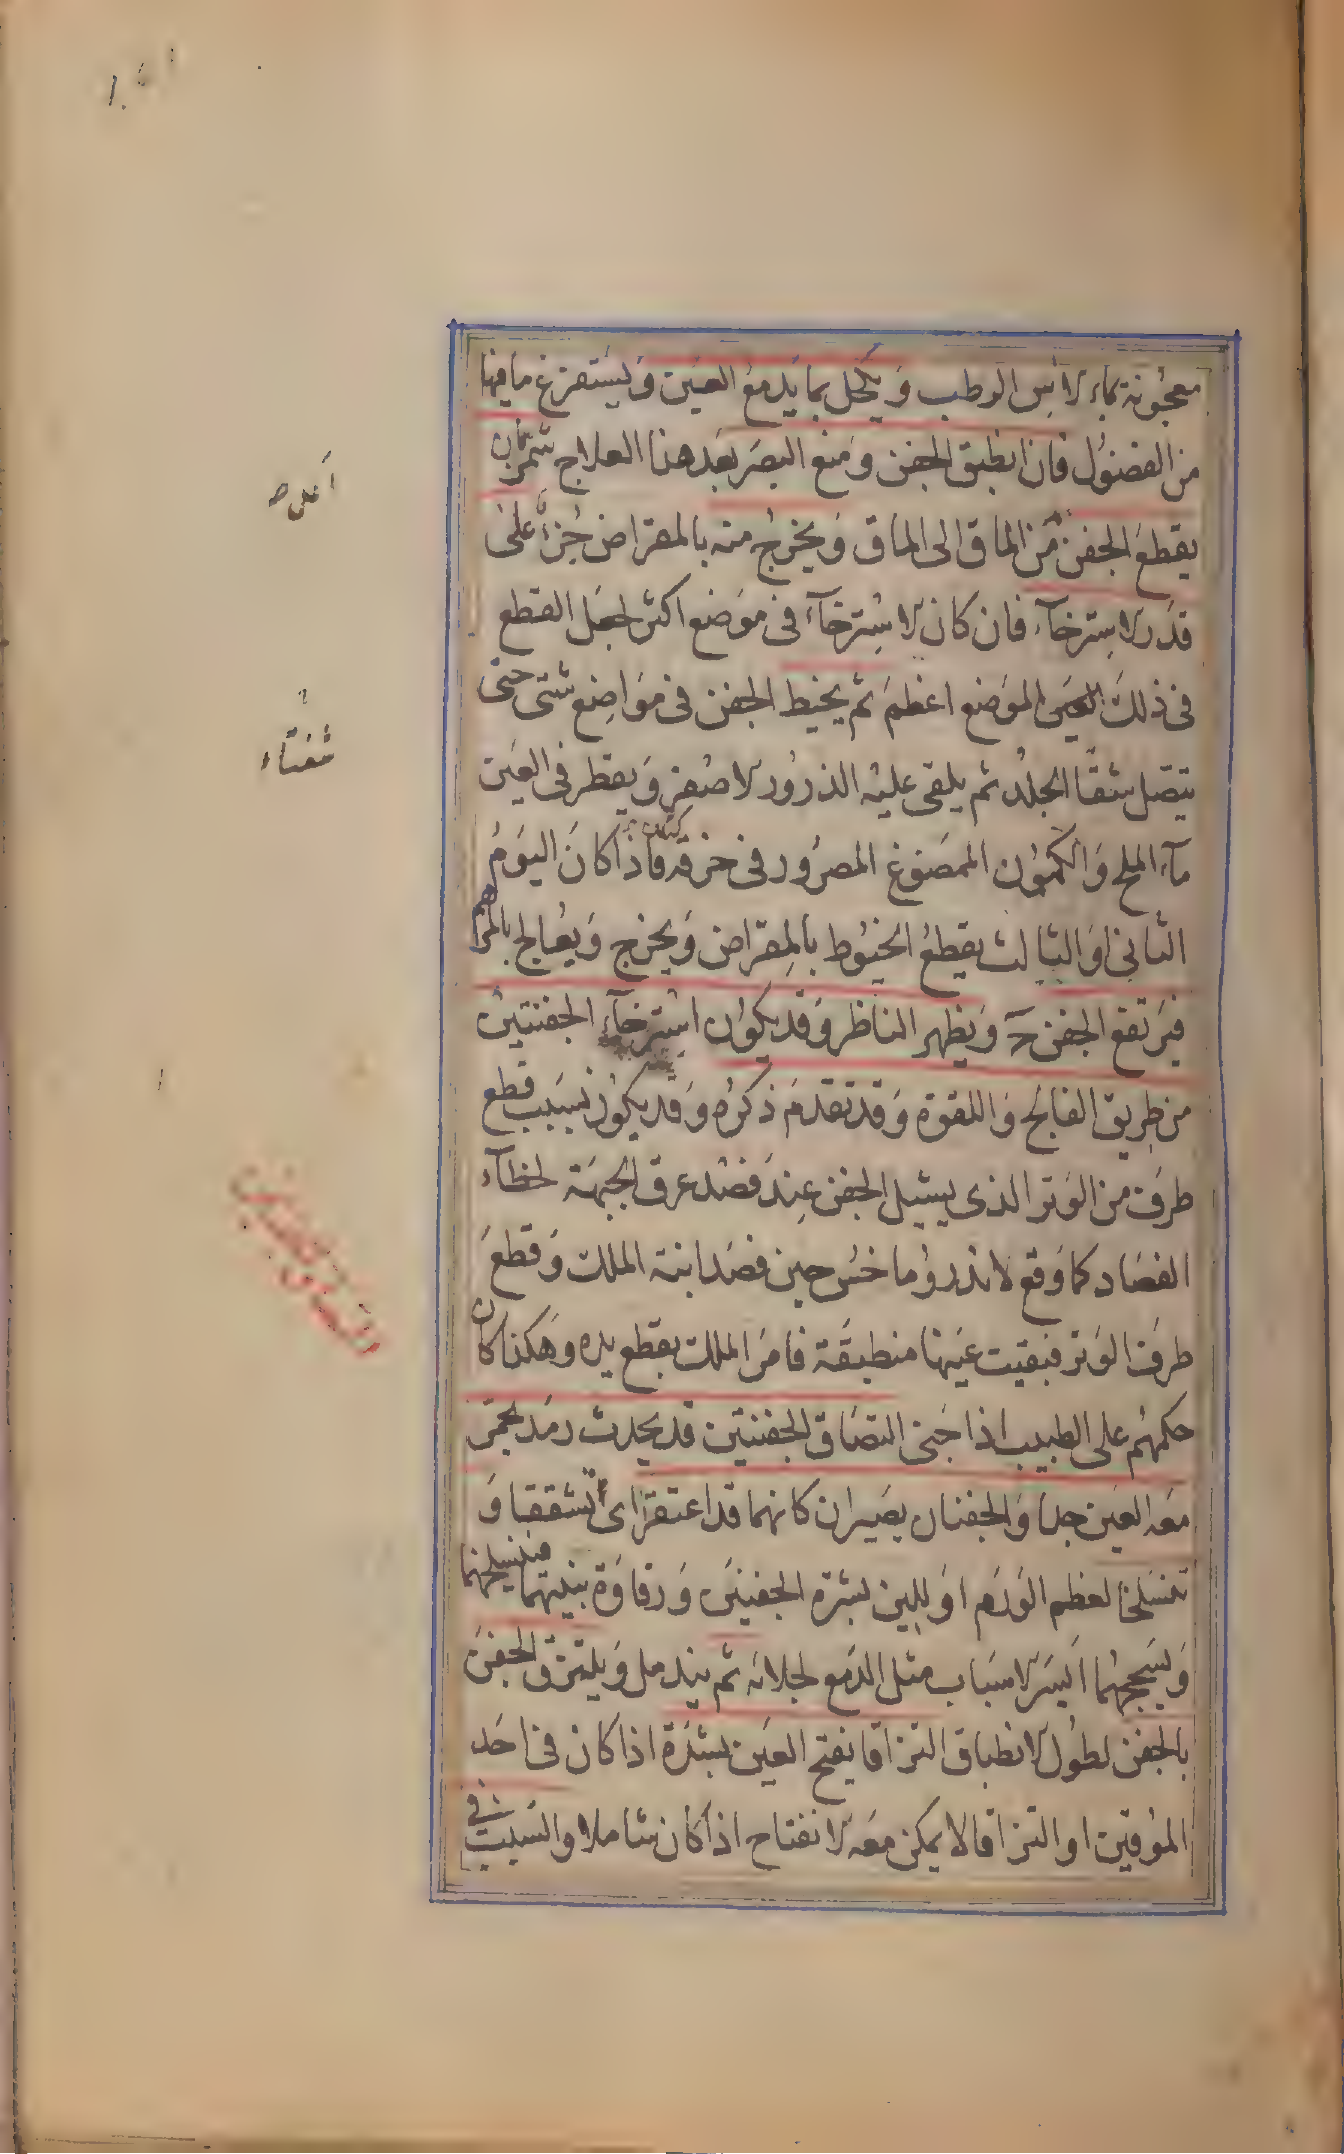 معجونة بماء الآس الرطب ويكحل بما يدمع العين ويستفرغ ما فيها
من الفضول فان انطبق الجفن ومنع البصر بعد هذا العلاج شمر بان
يقطع الجفن من الماق الى الماق ويخرج منه بالمقراض جزأ على
قدر الاسترخآء فان كان الاسترخآء فى موضع اكثر لجعل القطع
فى ذلك الموضع اعظم ثم يخيط الجفن فى مواضع شتى حتى
يتصل شقا الجلد ثم يلقى عليه الذرور الاصفر ويقطر فى العين
مآء الملح والكمون الممضوغ المصرور فى خرقة كتان فاذا كان اليوم
الثانى او الثالث يقطع الخيوط بالمقراض ويخرج ويعالج بالمراهم
فيرتفع الجفن ح ويظهر الناظر وقد يكون استرخآء الجفنين
من طريق الفالج واللقوة وقد تقدم ذكره وقد يكون بسبب قطع
طرف من الوتر الذى يشيل الجفن عند فصد عرق الجبهة لخطآء
الفصاد كما وقع لاندروماخس حين فصد ابنة الملك وقطع
طرف الوتر فبقيت عينها منطبقة فامر الملك بقطع يده وهكذا كان
حكمهم على الطبيب اذا جنى التصاق الجفنين قد يحدث رمد يحمر
معه العين جدا والجفنان يصيران كانهما قد اعتقرا اى تشققا و
تنسلخا لعظم الورم او للين بشرة الجفنين ورقاوة بنيتهما فيسلخهما
ويسحجهما ايسر الاسباب مثل الدمع لجلائه ثم يندمل ويلتزق الجفن
بالجفن لطول الانطباق التزاقا يفتح العين بشدة اذا كان فى احد
الموقين او التزاقا لا يمكن معه الانفتاح اذا كان شاملا والسبب فى
اعلى ص
شفتاء
التصاق الجفنين